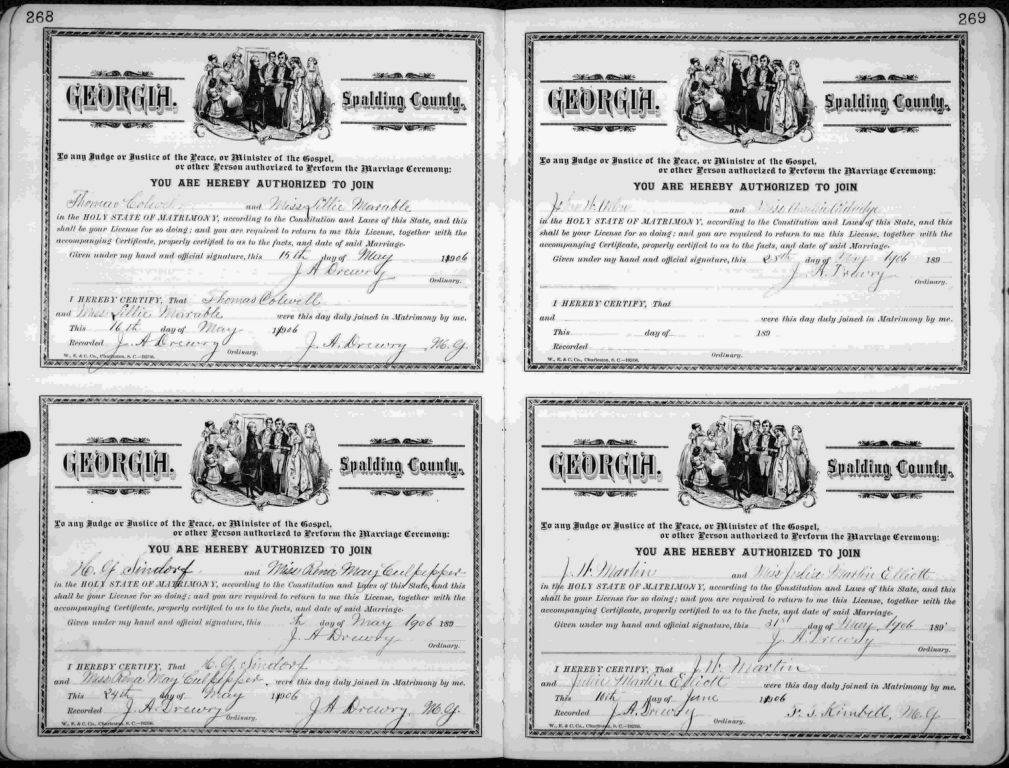 268
GEORGIA. Spalding County.
To any Judge or Justice of the Peace, or Minister of the Gospel,
or other Person authorized to Perform the Marriage Ceremony:
YOU ARE HEREBY AUTHORIZED TO JOIN
Thomas Colwell and Miss Lillie Marable
in the HOLY STATE OF MATRIMONY, according to the Constitution and Laws of this State, and this
shall be your License for so doing; and you are required to return to me this License, together with the
accompanying Certificate, properly certified to as to the facts, and date of said Marriage.
Given under my hand and official signature, this 15th day of May 1906
J. A. Drewry
Ordinary.
I HEREBY CERTIFY, That Thomas Colwell
and Miss Lillie Marable were this day duly joined in Matrimony by me.
This 16th day of May 1906
Recorded J. A. Drewry J. A. Drewry M. G.
Ordinary.
W., E. & C. Co., Charleston, S. C.
GEORGIA. Spalding County.
To any Judge or Justice of the Peace, or Minister of the Gospel,
or other Person authorized to Perform the Marriage Ceremony:
YOU ARE HEREBY AUTHORIZED TO JOIN
H. G. Sindorf and Miss Rena May Culpepper
in the HOLY STATE OF MATRIMONY, according to the Constitution and Laws of this State, and this
shall be your License for so doing; and you are required to return to me this License, together with the
accompanying Certificate, properly certified to as to the facts, and date of said Marriage.
Given under my hand and official signature, this day of May 1906 189
J. A. Drewry
Ordinary.
I HEREBY CERTIFY, That H. G. Sindorf
and Miss Rena May Culpepper were this day duly joined in Matrimony by me.
This 24th day of May 1906
Recorded J. A. Drewry J. A. Drewry M. G.
Ordinary.
W., E. & C. Co., Charleston, S. C.
269
GEORGIA. Spalding County.
To any Judge or Justice of the Peace, or Minister of the Gospel,
or other Person authorized to Perform the Marriage Ceremony:
YOU ARE HEREBY AUTHORIZED TO JOIN
John and Miss
in the HOLY STATE OF MATRIMONY, according to the Constitution and Laws of this State, and this
shall be your License for so doing; and you are required to return to me this License, together with the
accompanying Certificate, properly certified to as to the facts, and date of said Marriage.
Given under my hand and official signature, this day of May 1906 189
J. A. Drewry
Ordinary.
I HEREBY CERTIFY, That
and were this day duly joined in Matrimony by me.
This day of 189
Recorded
Ordinary.
W., E. & C. Co., Charleston, S. C.
GEORGIA. Spalding County.
To any Judge or Justice of the Peace, or Minister of the Gospel,
or other Person authorized to Perform the Marriage Ceremony:
YOU ARE HEREBY AUTHORIZED TO JOIN
J. W. Martin and Miss Julia Martin Elliott
in the HOLY STATE OF MATRIMONY, according to the Constitution and Laws of this State, and this
shall be your License for so doing; and you are required to return to me this License, together with the
accompanying Certificate, properly certified to as to the facts, and date of said Marriage.
Given under my hand and official signature, this 31st day of May 1906 189
J. A. Drewry
Ordinary.
I HEREBY CERTIFY, That J. W. Martin
and Julia Martin Elliott were this day duly joined in Matrimony by me.
This 10th day of June 1906
Recorded J. A. Drewry Kimbell, M. G.
Ordinary.
W., E. & C. Co., Charleston, S. C.